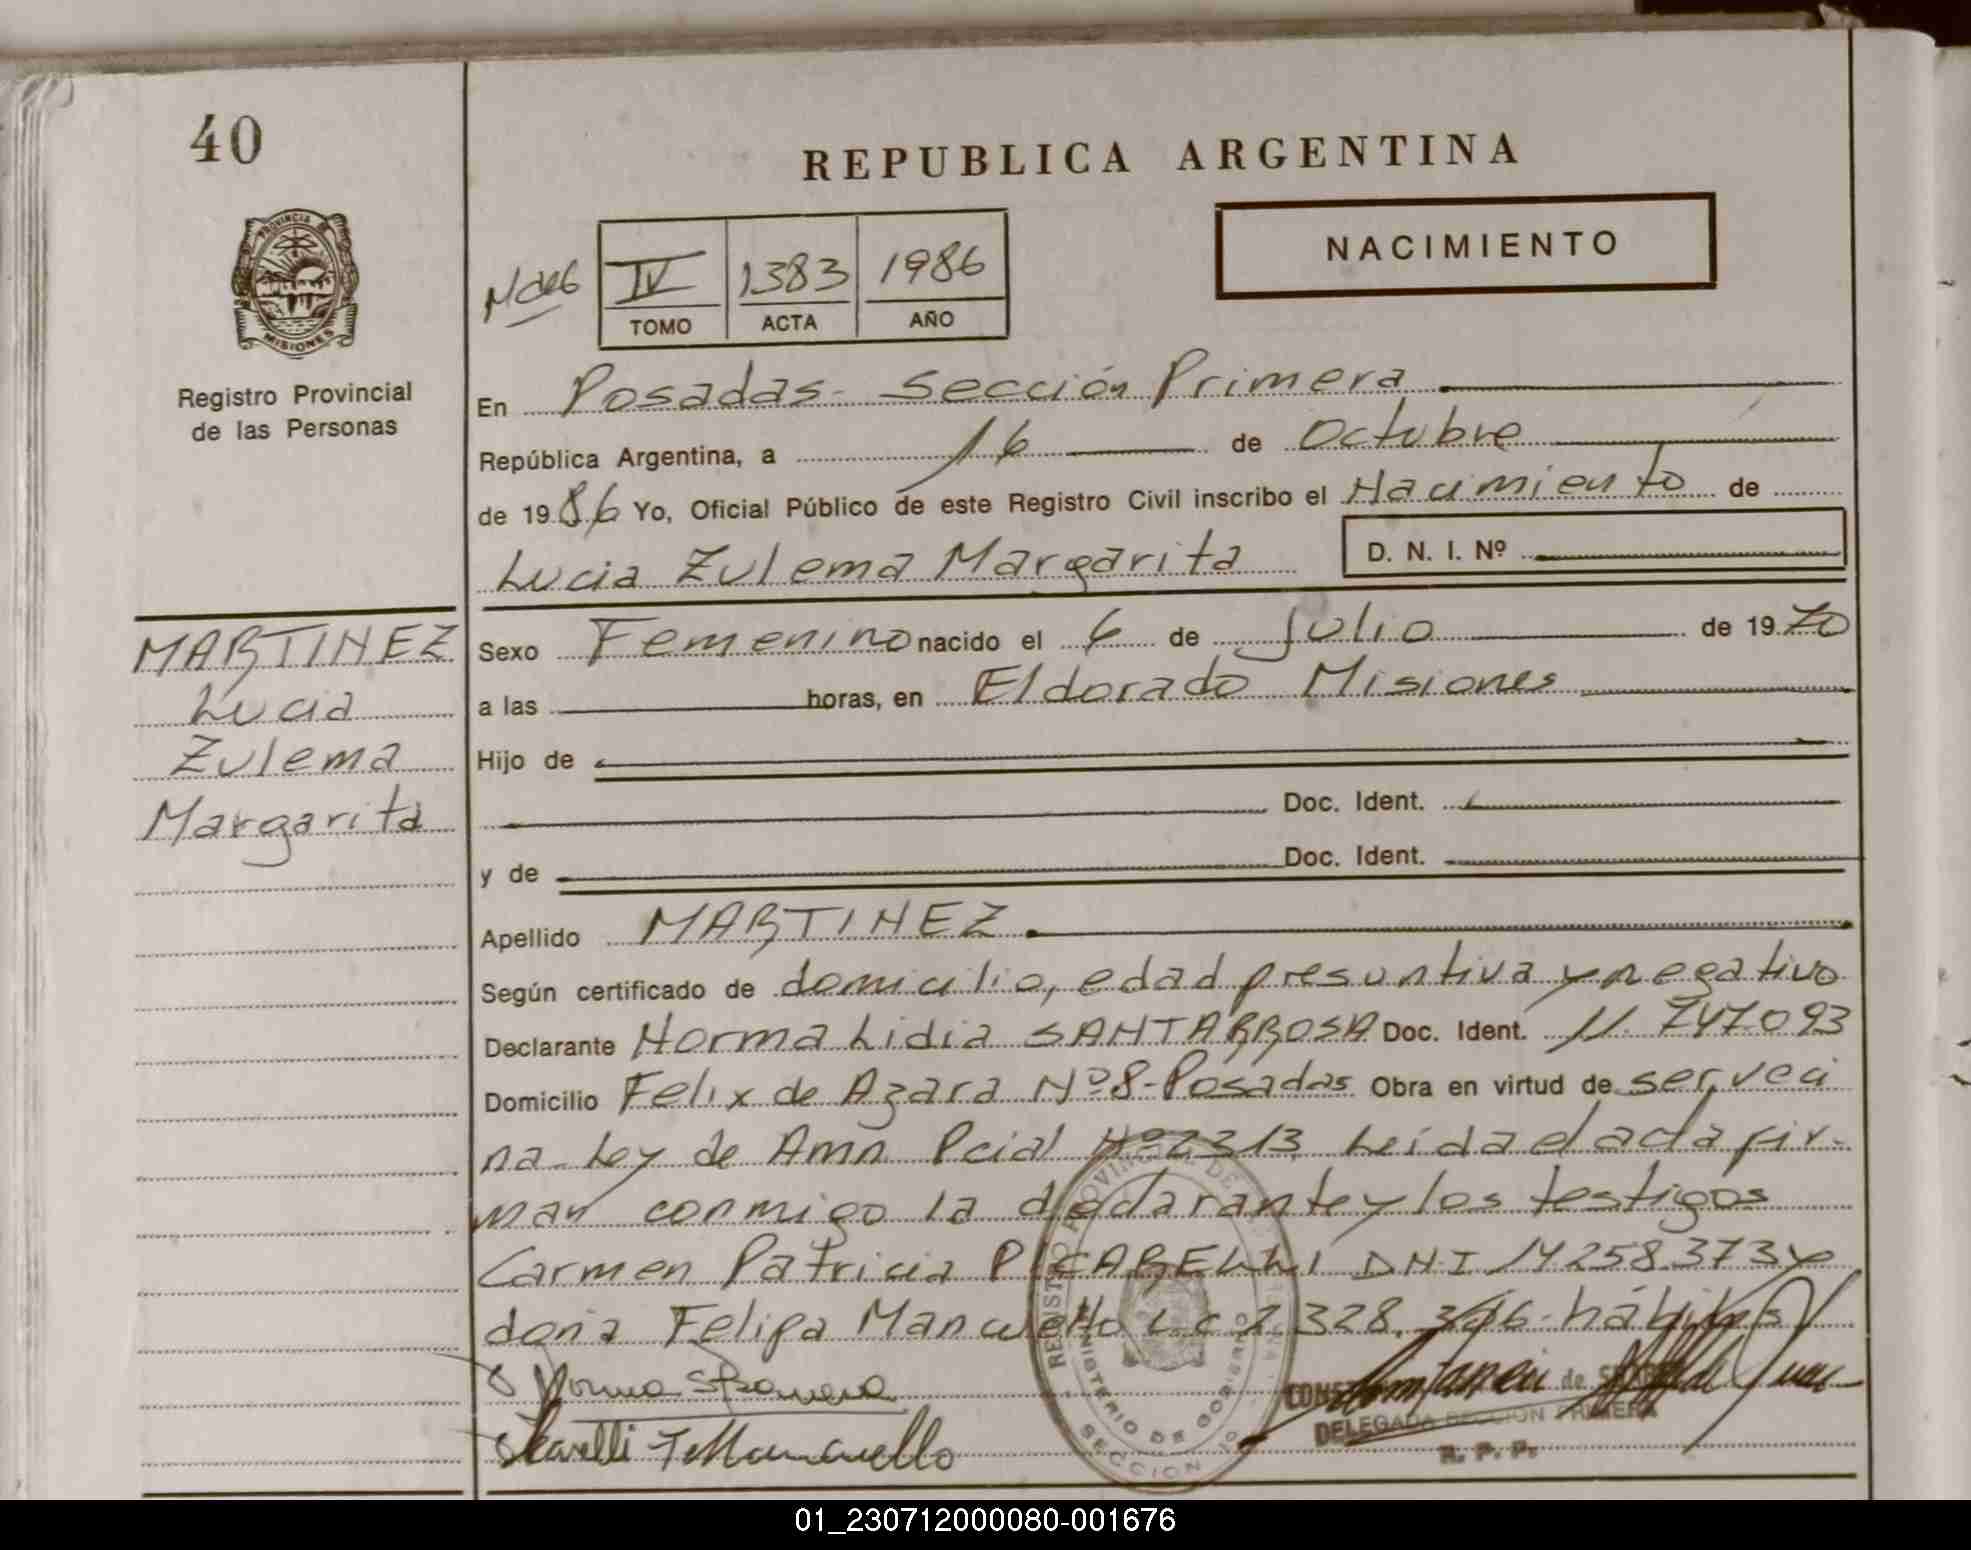 40
REPUBLICA ARGENTINA
PROVINCIA DE
MISIONES
NACIMIENTO
IV 1383 1986
TOMO ACTA AÑO
Registro Provincial
de las Personas
En Posadas - Sección Primera
República Argentina, a 16 de Octubre
de 1986 Yo, Oficial Público de este Registro Civil inscribo el Nacimiento de
Lucia Zulema Margarita D. N. I. Nº
MARTINEZ
Lucia
Zulema
Margarita
Sexo Femenino nacido el 6 de Julio de 1970
a las horas, en Eldorado Misiones
Hijo de
Doc. Ident.
y de Doc. Ident.
Apellido MARTINEZ
Según certificado de domicilio, edad presuntiva y negativo
Declarante Norma Lidia SANTARROSA Doc. Ident. 11.747.093
Domicilio Felix de Azara Nº 8 - Posadas Obra en virtud de ser veci
na - Ley de Amn. Pcial Nº 2313. Leída el acta fir-
man conmigo la declarante y los testigos
Carmen Patricia DNI 14.258.373 y
doña Felipa Mancuello L.C 2.328. hábiles
REGISTRO PROVINCIAL DE
MINISTERIO DE GOBIERNO
SECCION
DELEGADA SECCION PRIMERA
R. P. P.
01_230712000080-001676